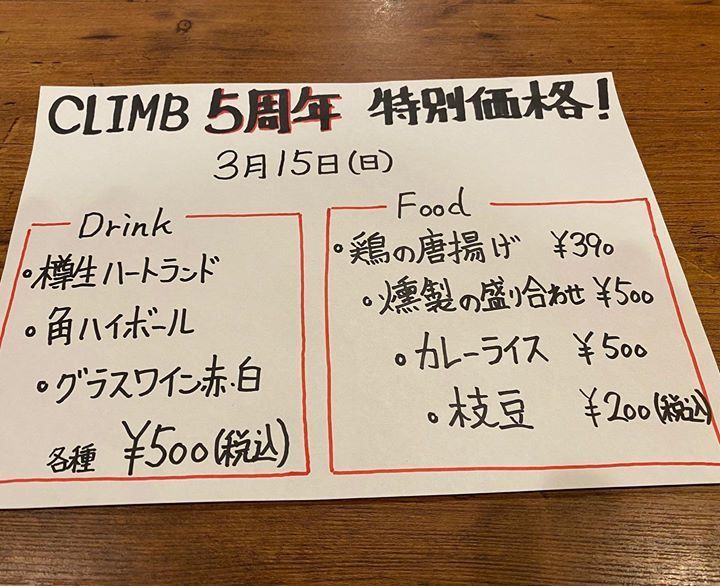 CLIMB 5周年 特別価格！
3月15日(日)
Drink
・樽生ハートランド
・角ハイボール
・グラスワイン赤・白
各種 ¥500(税込)
Food
・鶏の唐揚げ ¥390
・燻製の盛り合わせ ¥500
・カレーライス ¥500
・枝豆 ¥200(税込)